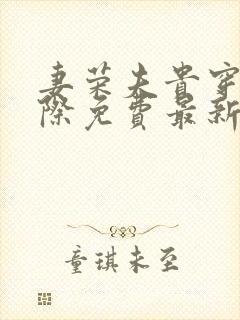 妻荣夫贵穿
际免费最新
童琪未至